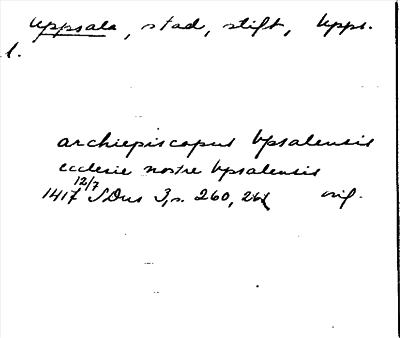 Uppsala, stad, stift, Upps.
l.
archiepiscopus Vpsalensis
ecclesie nostre Vpsalensis
1417 12/7 SDns 3, s. 260, 261 orig.